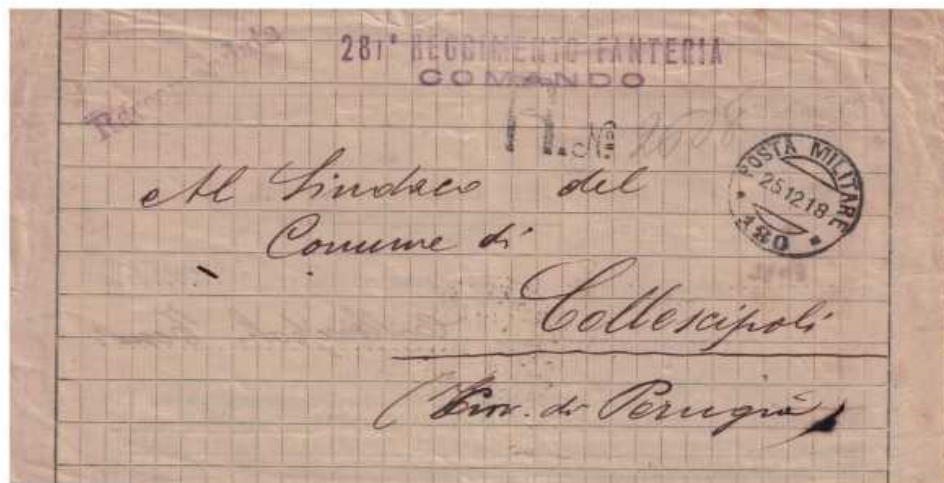 281° REGGIMENTO FANTERIA
COMANDO
Raccomandata
N. 2628
POSTA MILITARE
25.12.18
180
Al Sindaco del
Comune di
Collescipoli
(Prov. di Perugia)